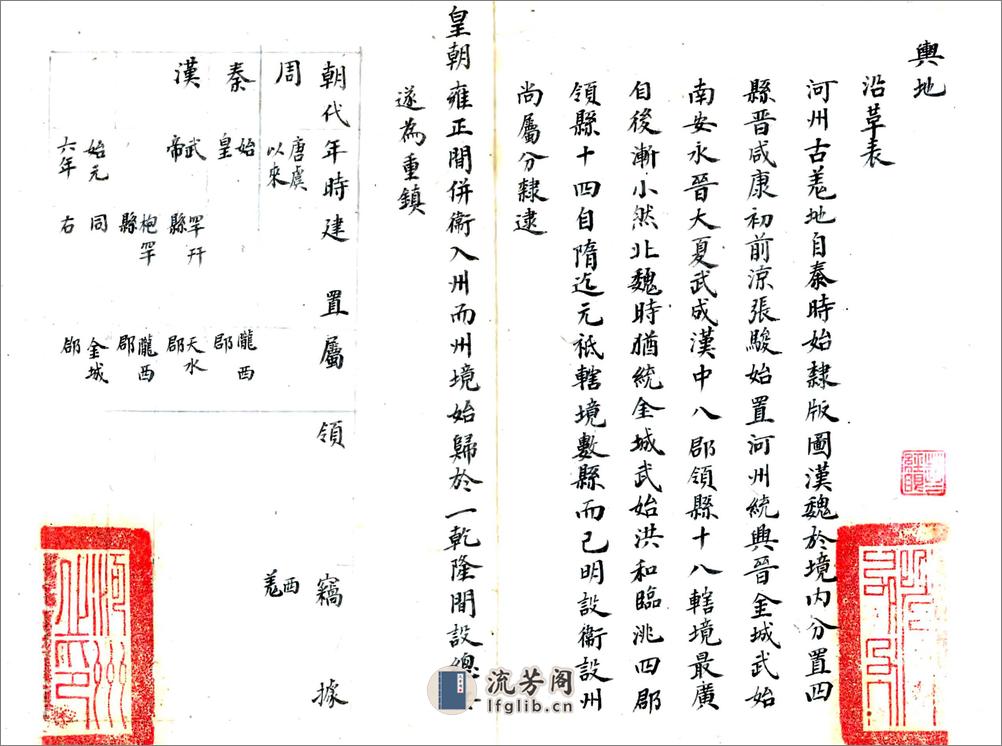 輿地
沿革表
河州古羗地自秦時始隸版圖漢魏於境内分置四
縣晋咸康初前涼張駿始置河州統興晉金城武始
南安永晉大夏武成漢中八郡領縣十八轄境最廣
自後漸小然北魏時猶統金城武始洪和臨洮四郡
領縣十四自隋迄元祗轄境數縣而已明設衞設州
尚屬分隸逮
皇朝雍正間併衞入州而州境始歸於一乾隆間設總
遂為重鎮
朝代年時建置屬領竊據
周 唐虞以來 西羗
秦 始皇 隴西郡
漢 武帝 罕幵縣 天水郡
枹罕縣 隴西郡
始元六年 同右 金城郡
河州之印
流芳阁
lfglib.cn